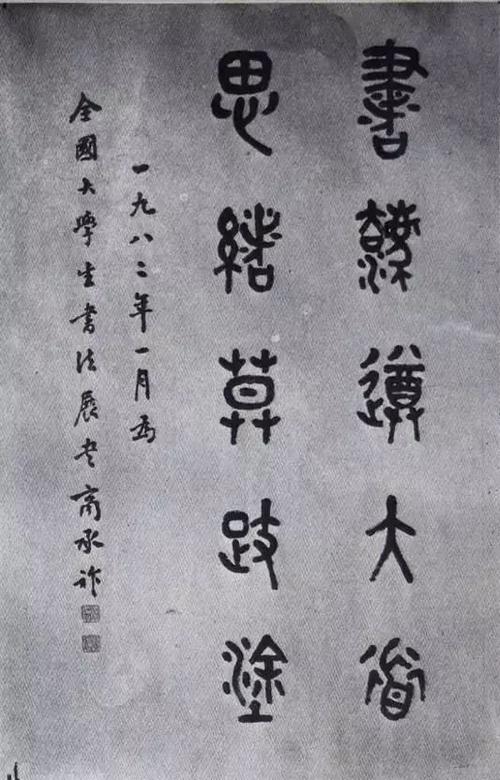 書遵大道
思緒莫跂塗
一九八二年一月為
全國大學生書法展書商承祚